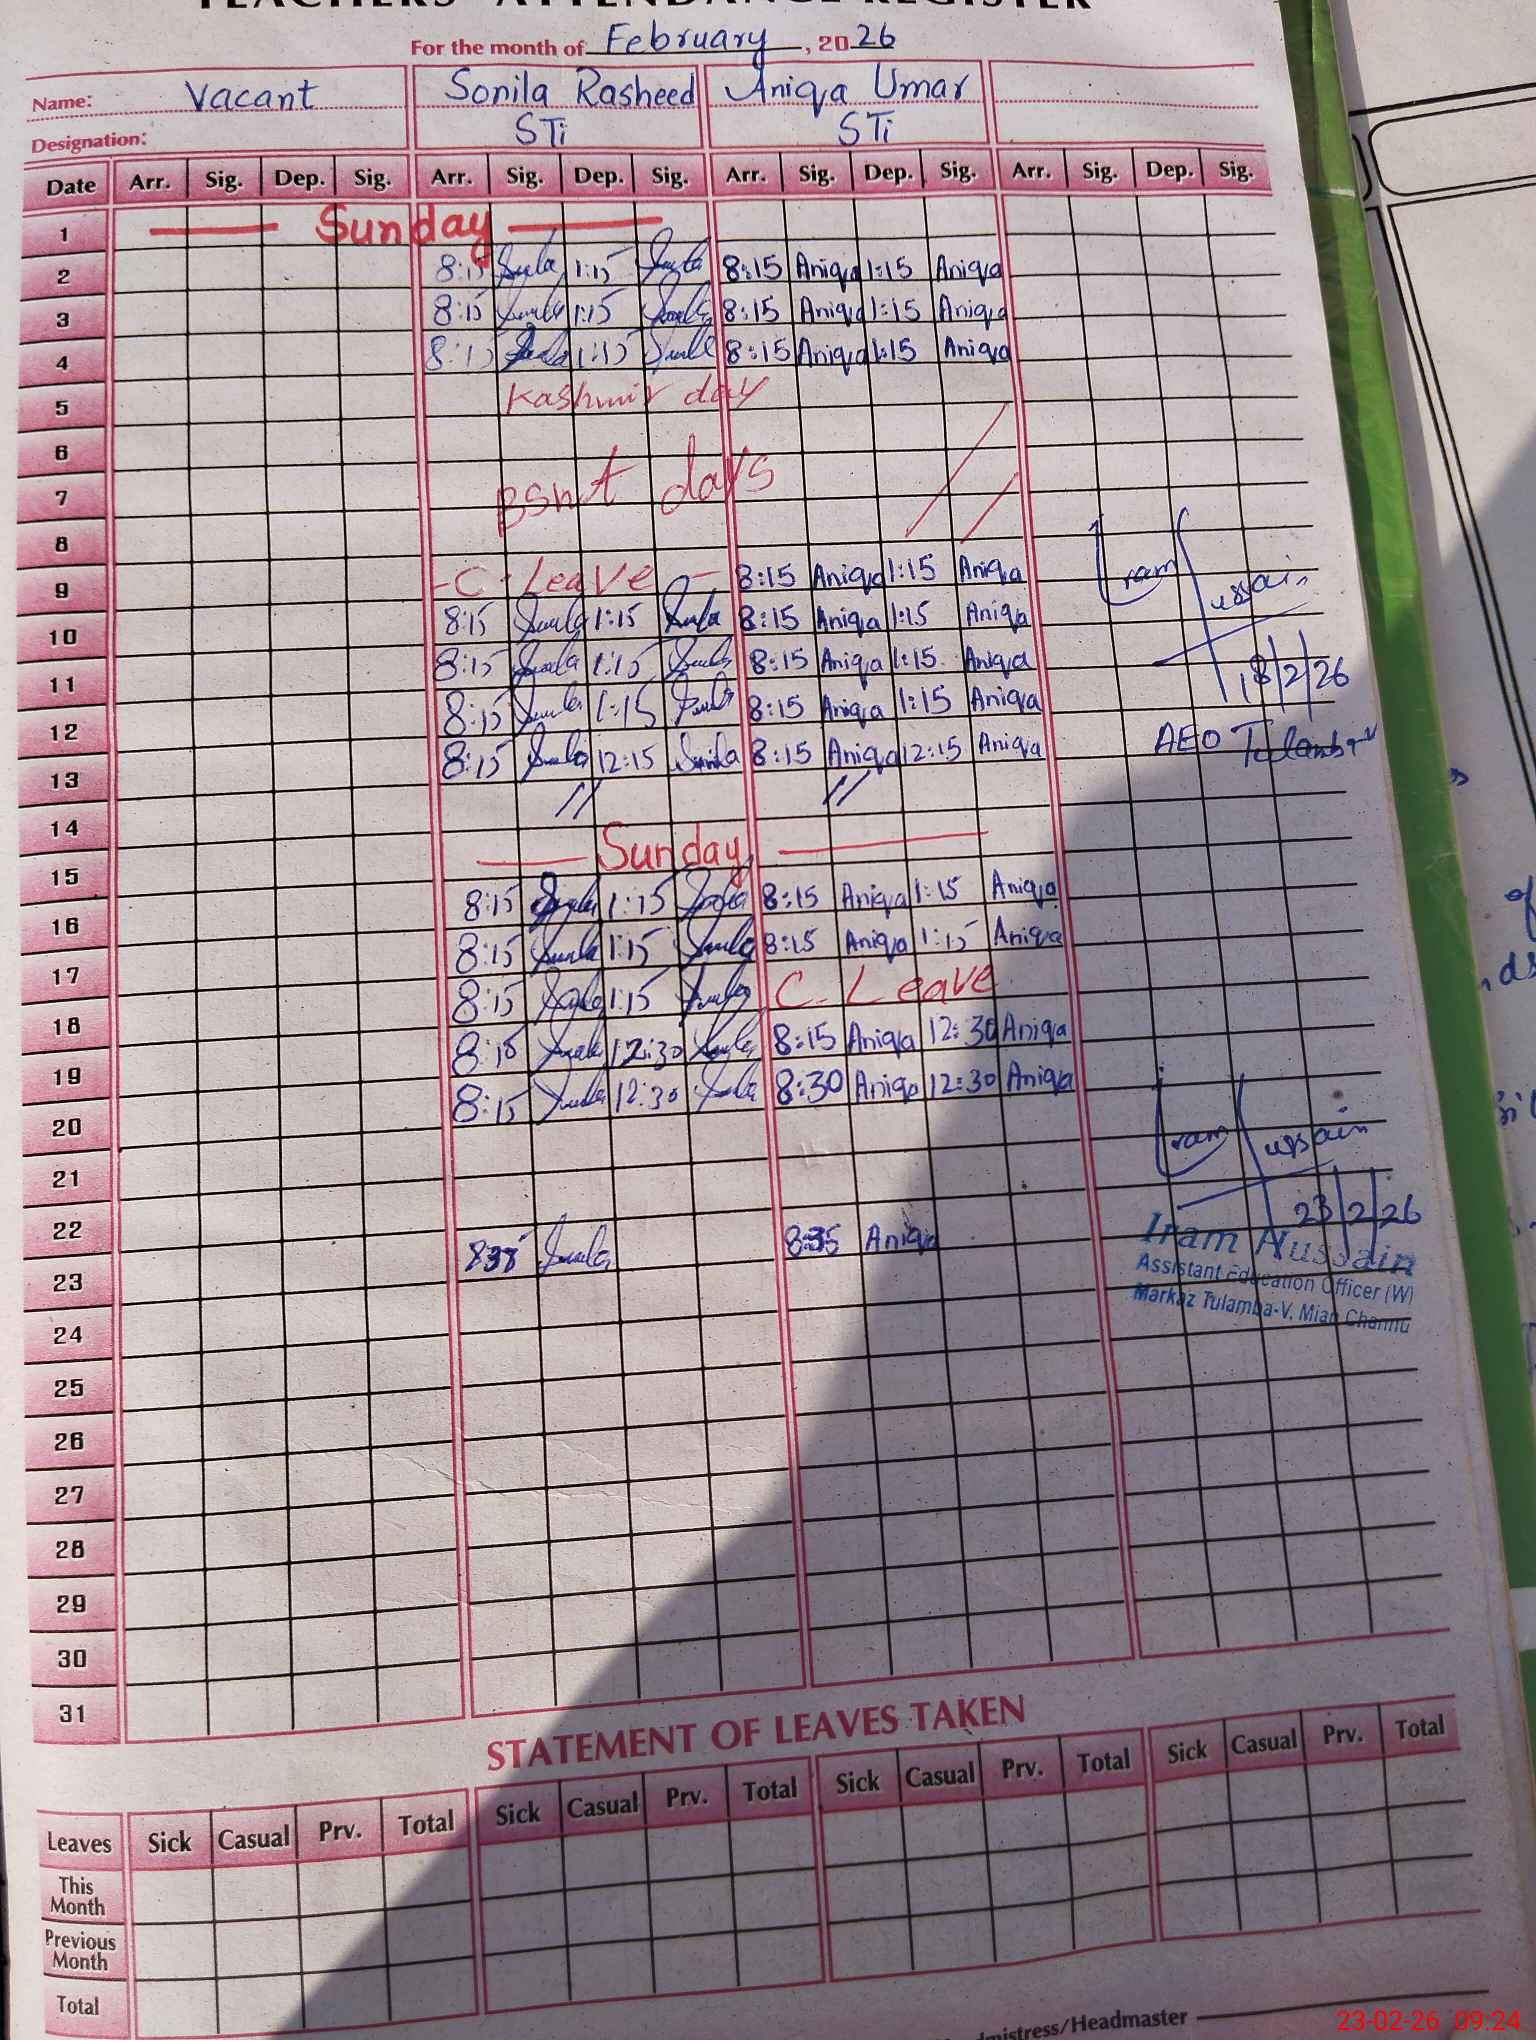 TEACHERS' ATTENDANCE REGISTER
For the month of February, 2026
Name: Vacant Sonila Rasheed Aniqa Umar
Designation: STi STi
Date Arr. Sig. Dep. Sig. Arr. Sig. Dep. Sig. Arr. Sig. Dep. Sig. Arr. Sig. Dep. Sig.
1 Sunday
2 8:15 1:15 8:15 Aniqa 1:15 Aniqa
3 8:15 1:15 8:15 Aniqa 1:15 Aniqa
4 8:15 1:15 8:15 Aniqa 1:15 Aniqa
5 Kashmir day
6
7 days
8
9 C. Leave 8:15 Aniqa 1:15 Aniqa
10 8:15 1:15 8:15 Aniqa 1:15 Aniqa
11 8:15 1:15 8:15 Aniqa 1:15 Aniqa
12 8:15 1:15 8:15 Aniqa 1:15 Aniqa
13 8:15 12:15 8:15 Aniqa 12:15 Aniqa
14 // //
15 Sunday
16 8:15 1:15 8:15 Aniqa 1:15 Aniqa
17 8:15 1:15 8:15 Aniqa 1:15 Aniqa
18 8:15 1:15 C. Leave
19 8:15 12:30 8:15 Aniqa 12:30 Aniqa
20 8:15 12:30 8:30 Aniqa 12:30 Aniqa
21
22
23 8:35 Aniqa
24
25
26
27
28
29
30
31
Iram Hussain
18/2/26
AEO
Iram Hussain
23/2/26
Iram Hussain
Assistant Education Officer (W)
Markaz Tulamba-V, Mian Channu
STATEMENT OF LEAVES TAKEN
Leaves Sick Casual Prv. Total Sick Casual Prv. Total Sick Casual Prv. Total Sick Casual Prv. Total
This Month
Previous Month
Total
mistress/Headmaster
23-02-26 09:24